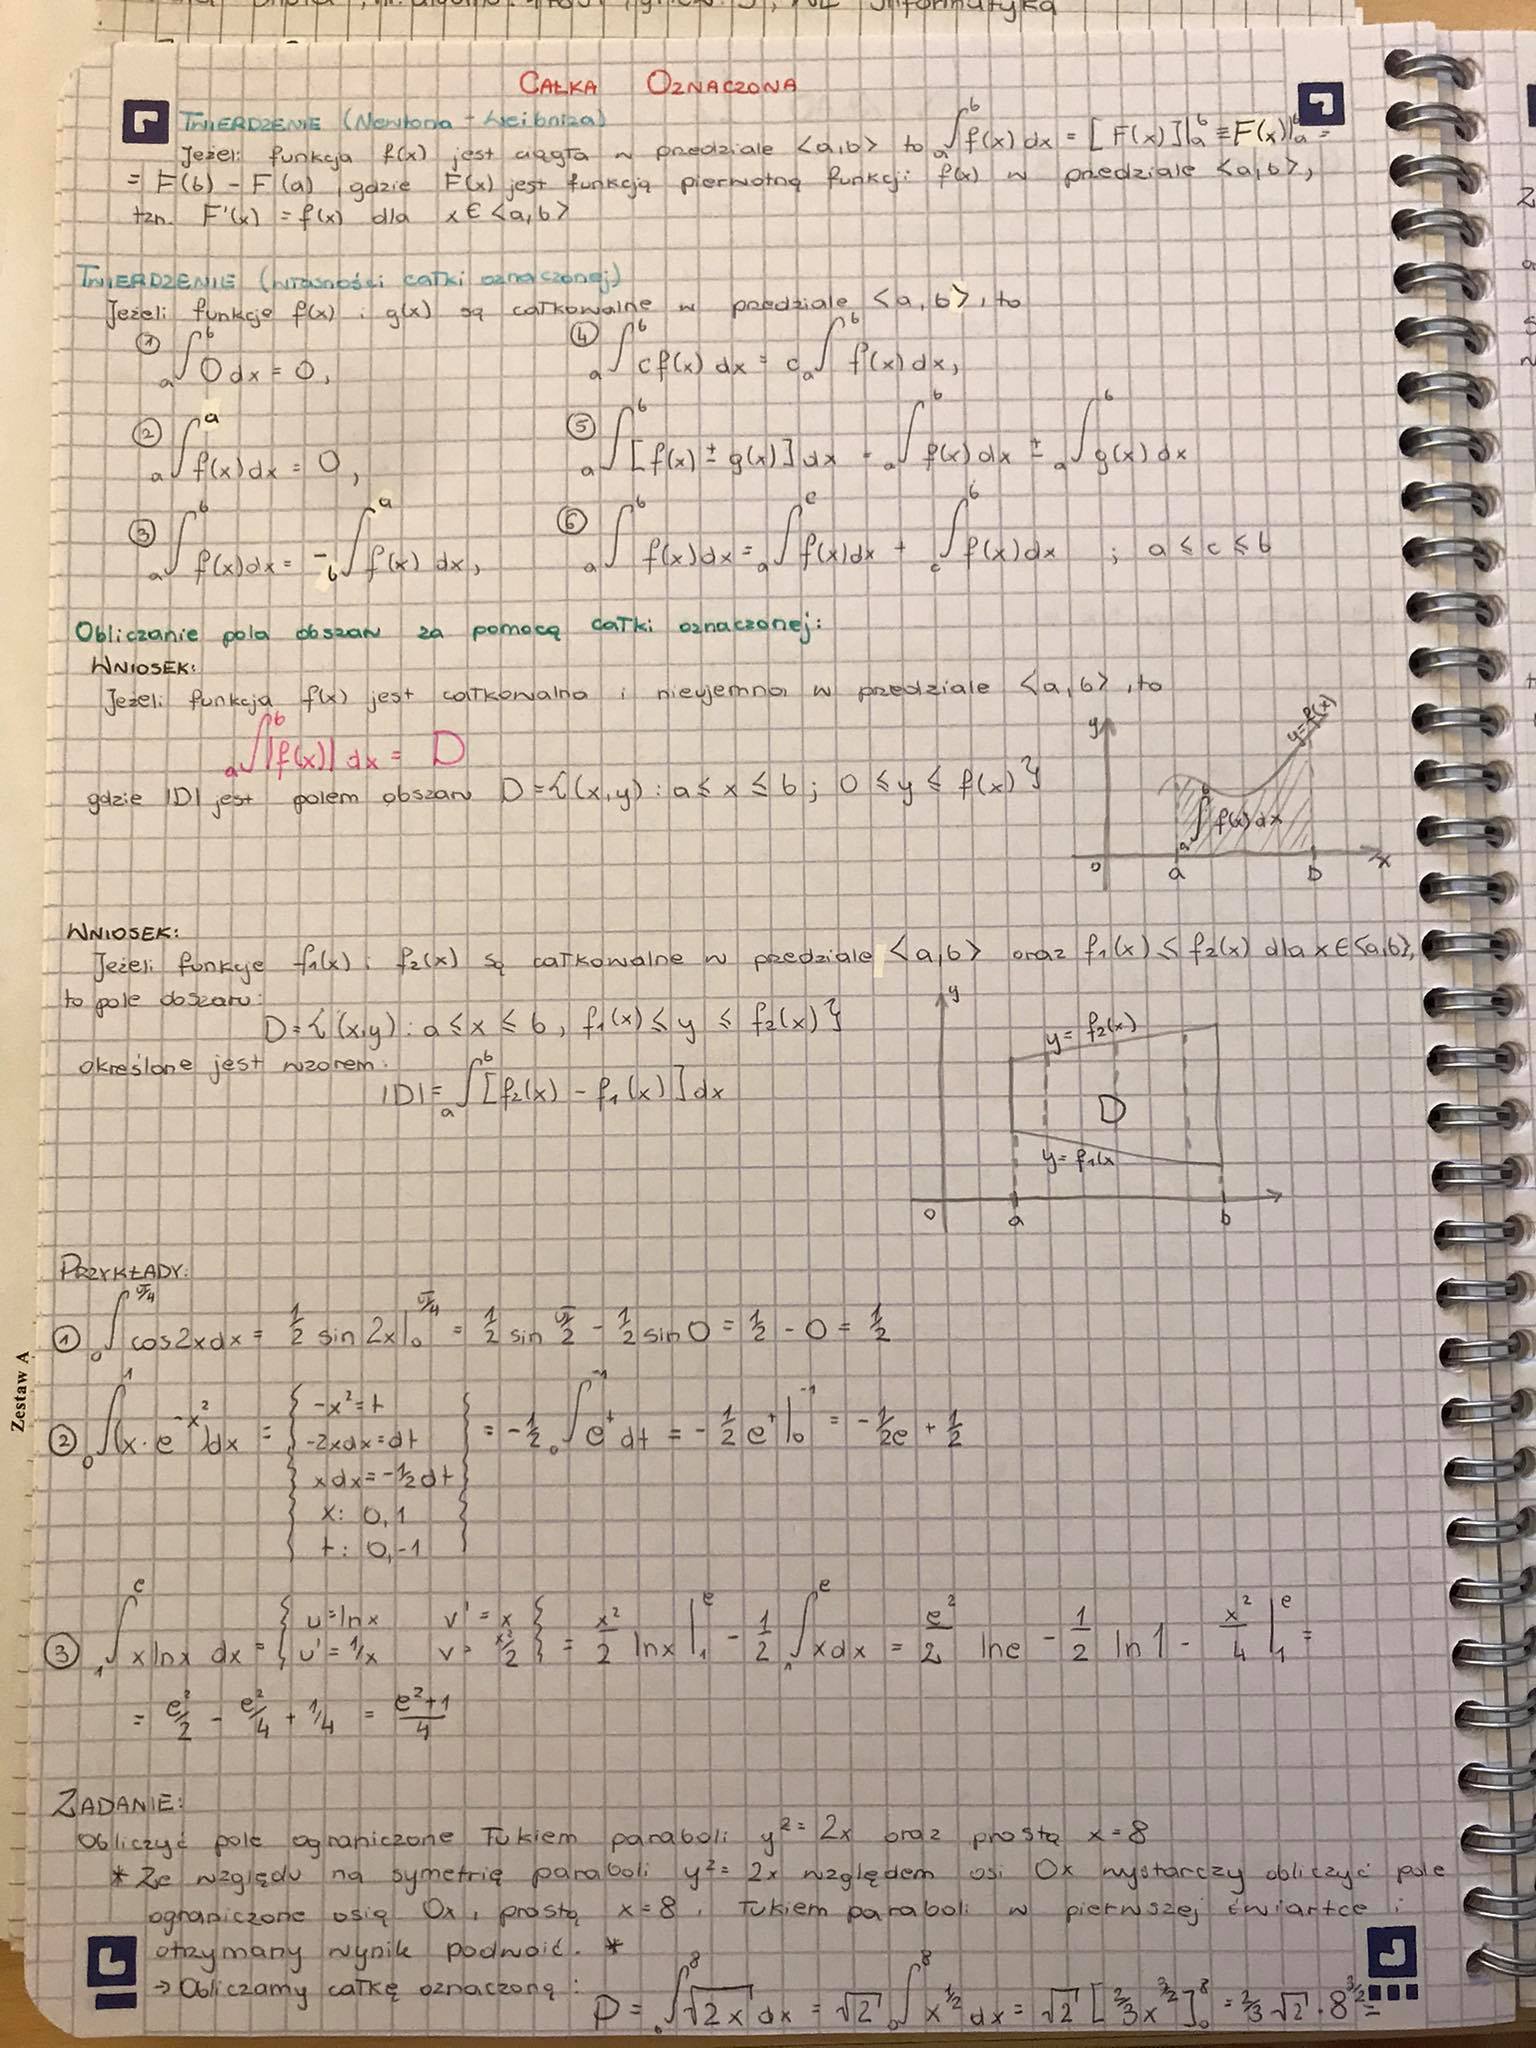 Informatyka
CAŁKA OZNACZONA
TWIERDZENIE (Newtona - Leibniza)
Jeżeli funkcja f(x) jest ciągła w przedziale <a,b> to ₐ∫ᵇ f(x) dx = [F(x)]|ₐᵇ ≡ F(x)|ₐᵇ =
= F(b) - F(a), gdzie F(x) jest funkcją pierwotną funkcji f(x) w przedziale <a,b>,
tzn. F'(x) = f(x) dla x ∈ <a,b>
TWIERDZENIE (własności całki oznaczonej)
Jeżeli funkcje f(x) i g(x) są całkowalne w przedziale <a,b>, to
① ₐ∫ᵇ 0 dx = 0,
④ ₐ∫ᵇ cf(x) dx = c ₐ∫ᵇ f(x) dx,
② ₐ∫ᵃ f(x) dx = 0,
⑤ ₐ∫ᵇ [f(x) ± g(x)] dx = ₐ∫ᵇ f(x) dx ± ₐ∫ᵇ g(x) dx
③ ₐ∫ᵇ f(x) dx = - b∫ᵃ f(x) dx,
⑥ ₐ∫ᵇ f(x) dx = ₐ∫ᶜ f(x) dx + c∫ᵇ f(x) dx ; a ≤ c ≤ b
Obliczanie pola obszaru za pomocą całki oznaczonej:
WNIOSEK:
Jeżeli funkcja f(x) jest całkowalna i nieujemna w przedziale <a,b>, to
ₐ∫ᵇ |f(x)| dx = D
gdzie |D| jest polem obszaru D = {(x,y) : a ≤ x ≤ b ; 0 ≤ y ≤ f(x)}
y
y=f(x)
ₐ∫ᵇ f(x) dx
0 a b x
WNIOSEK:
Jeżeli funkcje f₁(x) i f₂(x) są całkowalne w przedziale <a,b> oraz f₁(x) ≤ f₂(x) dla x ∈ <a,b>,
to pole obszaru:
D = {(x,y) : a ≤ x ≤ b, f₁(x) ≤ y ≤ f₂(x)}
określone jest wzorem:
|D| = ₐ∫ᵇ [f₂(x) - f₁(x)] dx
y
y = f₂(x)
D
y = f₁(x
0 a b
PRZYKŁADY:
① ₀∫^(π/4) cos2x dx = 1/2 sin 2x |₀^(π/4) = 1/2 sin π/2 - 1/2 sin 0 = 1/2 - 0 = 1/2
② ₀∫¹ (x · e^(-x²)) dx = { -x² = t
-2xdx = dt
xdx = -1/2 dt
x: 0, 1
t: 0, -1 } = -1/2 ₀∫⁻¹ eᵗ dt = -1/2 eᵗ |₀⁻¹ = -1/2e + 1/2
③ ₁∫ᵉ x lnx dx = { u = lnx v' = x
u' = 1/x v = x²/2 } = x²/2 lnx |₁ᵉ - 1/2 ₁∫ᵉ x dx = e²/2 ln e - 1/2 ln 1 - x²/4 |₁ᵉ =
= e²/2 - e²/4 + 1/4 = (e²+1)/4
ZADANIE:
Obliczyć pole ograniczone łukiem paraboli y² = 2x oraz prostą x = 8
* Ze względu na symetrię paraboli y² = 2x względem osi Ox wystarczy obliczyć pole
ograniczone osią Ox, prostą x = 8, łukiem paraboli w pierwszej ćwiartce i
otrzymany wynik podwoić. *
→ Obliczamy całkę oznaczoną:
P = ₀∫⁸ √2x dx = √2 ₀∫⁸ x^(1/2) dx = √2 [2/3 x^(3/2)]₀⁸ = 2/3 √2 · 8^(3/2) =
Zestaw A